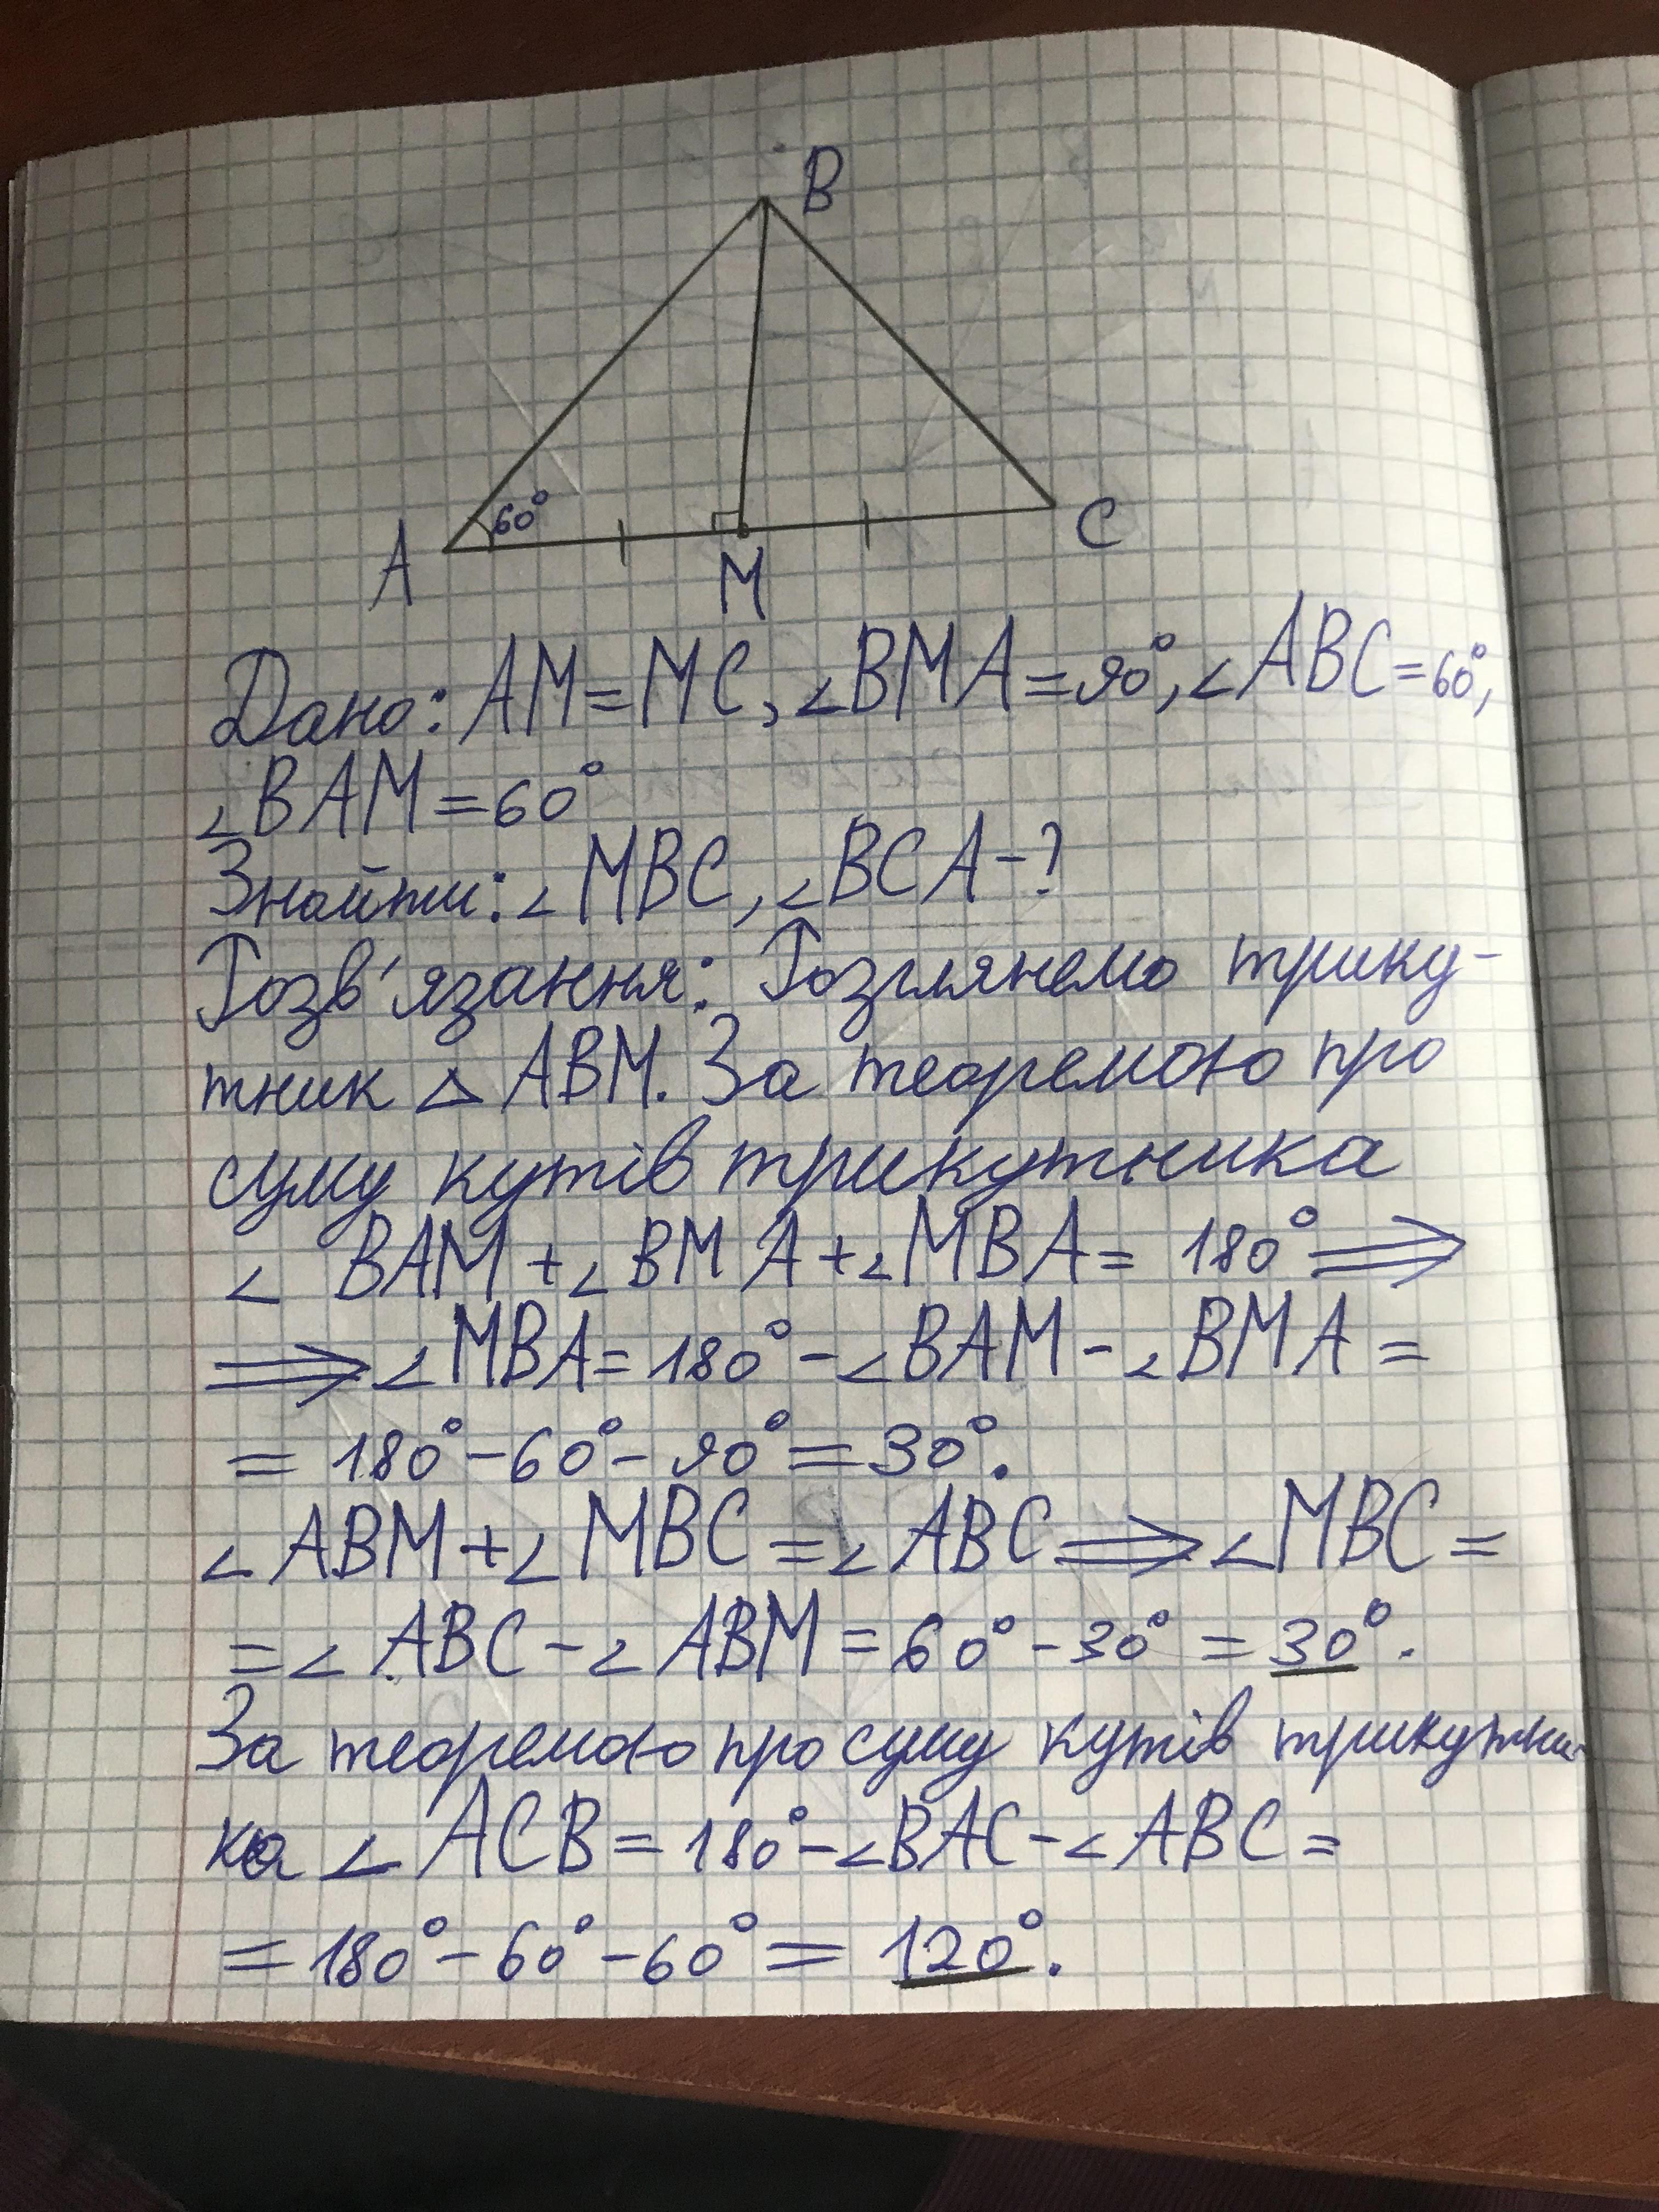 B
60°
A
M
C
Дано: AM=MC, ∠BMA=90°, ∠ABC=60°,
∠BAM=60°
Знайти: ∠MBC, ∠BCA-?
Розв'язання: Розглянемо трику-
тник △ ABM. За теоремою про
суму кутів трикутника
∠ BAM+∠BMA+∠MBA= 180° ⟹
⟹∠MBA=180°-∠BAM-∠BMA=
= 180°-60°-90°=30°.
∠ABM+∠MBC=∠ABC⟹∠MBC=
=∠ABC-∠ABM=60°-30°=30°.
За теоремою про суму кутів трикутни-
ка ∠ACB=180°-∠BAC-∠ABC=
=180°-60°-60°=120°.